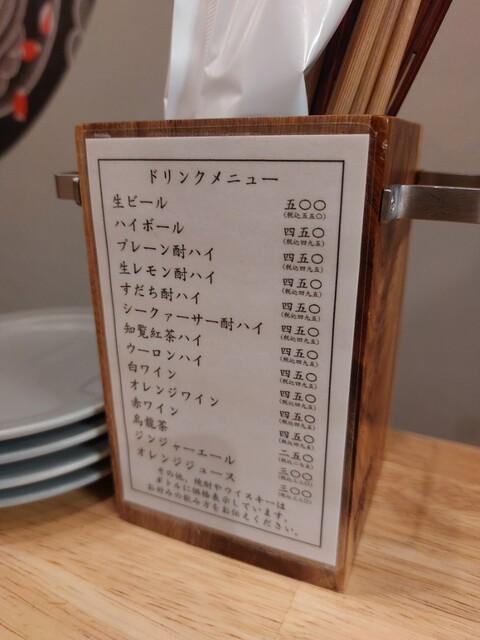 ドリンクメニュー
生ビール 五〇〇
(税込五五〇)
ハイボール 四五〇
(税込四九五)
プレーン酎ハイ 四五〇
(税込四九五)
生レモン酎ハイ 四五〇
(税込四九五)
すだち酎ハイ 四五〇
(税込四九五)
シークァーサー酎ハイ 四五〇
(税込四九五)
知覧紅茶ハイ 四五〇
(税込四九五)
ウーロンハイ 四五〇
(税込四九五)
白ワイン 四五〇
(税込四九五)
オレンジワイン 四五〇
(税込四九五)
赤ワイン 四五〇
(税込四九五)
烏龍茶 二五〇
(税込二七五)
ジンジャーエール 三〇〇
(税込三三〇)
オレンジジュース 三〇〇
(税込三三〇)
その他、焼酎やウイスキーは
ボトルに価格表示しています。
お好みの飲み方をお伝えください。